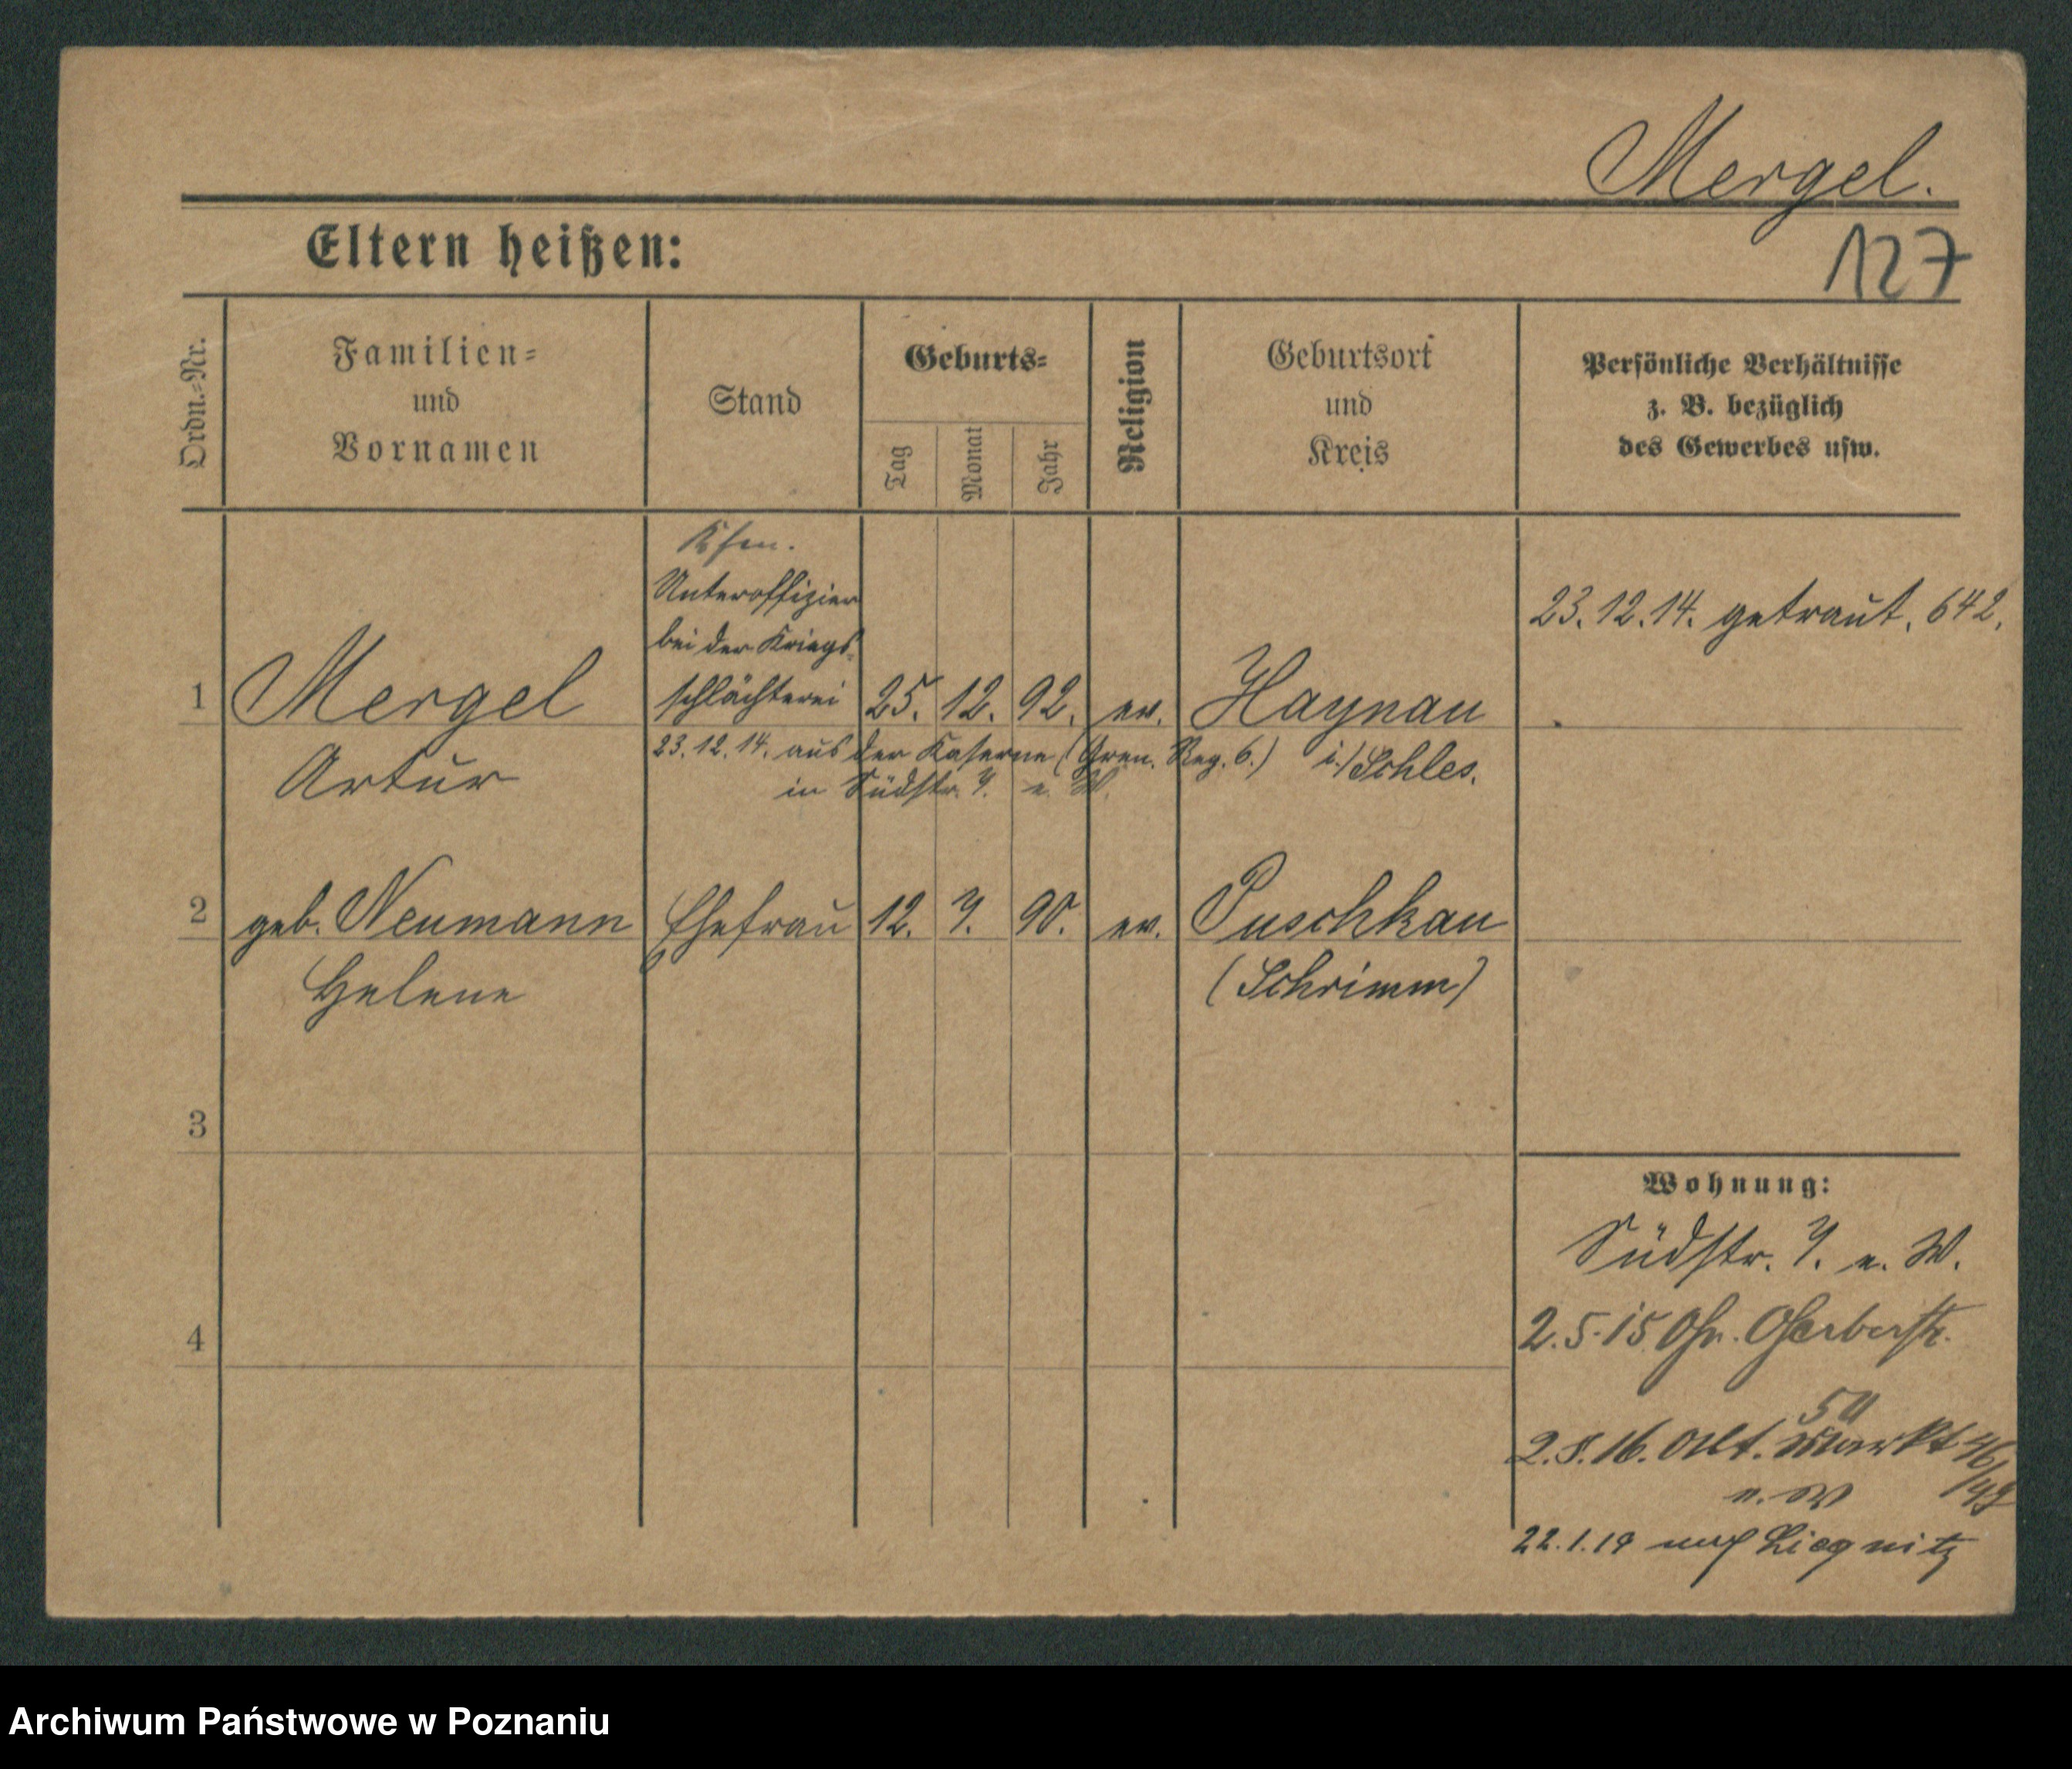 Mergel.
127
Eltern heißen:
Ordn.-Nr.
Familien-
und
Vornamen
Stand
Geburts-
Tag
Monat
Jahr
Religion
Geburtsort
und
Kreis
Persönliche Verhältnisse
z. B. bezüglich
des Gewerbes usw.
Unteroffizier
bei der Kriegs-
schlächterei
23.12.14. getraut. 642.
1 Mergel 25. 12. 92. ev. Haynau
Artur
23.12.14. aus der Kaserne (Gren. Reg. 6.) i./Schles.
in Südstr. 7. e. W.
2 geb. Neumann Ehefrau 12. 7. 90. ev. Puschkau
Helene (Schrimm)
3
4
Wohnung:
Südstr. 7. e. W.
2.5.15 Gr. Gerberstr.
2.8.16. Alt. Markt 46
e. W
22.1.19 nach Liegnitz
Archiwum Państwowe w Poznaniu